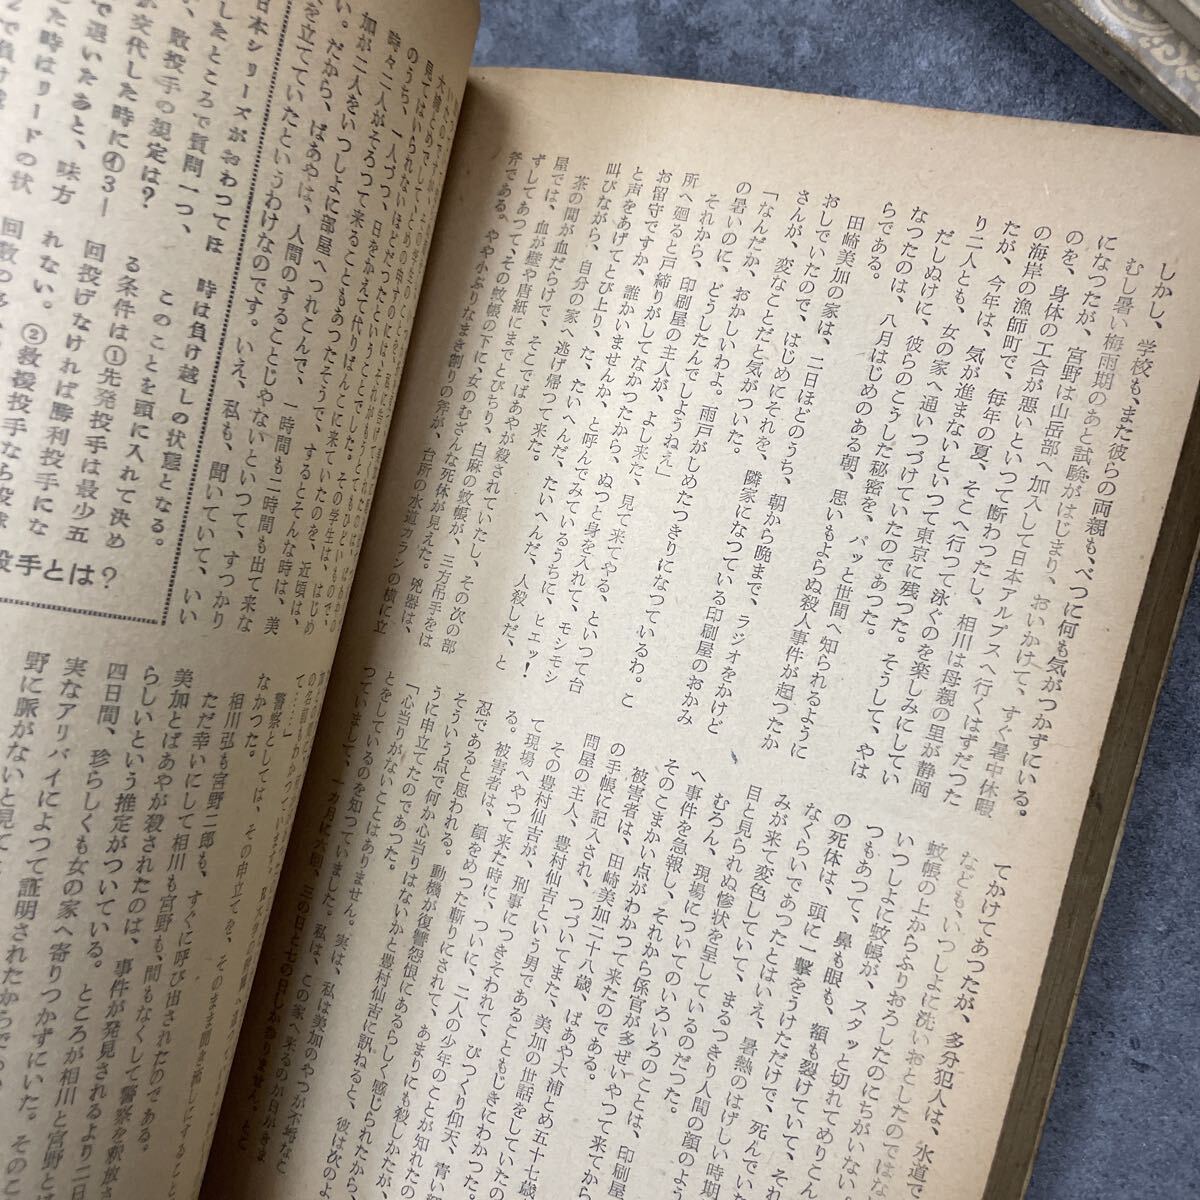 しかし、学校も、また彼らの両親も、べつに何も気がつかずにいる。
むし暑い梅雨期のあと試験がはじまり、おいかけて、すぐ暑中休暇
になつたが、宮野は山岳部へ加入して日本アルプスへ行くはずだつた
のを、身体の工合が悪いといつて断わつたし、相川は母親の里が静岡
の海岸の漁師町で、毎年の夏、そこへ行つて泳ぐのを楽しみにしてい
たが、今年は、気が進まないといつて東京に残つた。そうして、やは
り二人とも、女の家へ通いつづけていたのであつた。
だしぬけに、彼らのこうした秘密を、パッと世間へ知られるように
なつたのは、八月はじめのある朝、思いもよらぬ殺人事件が起つたか
らである。
田崎美加の家は、二日ほどのうち、朝から晩まで、ラジオをかけど
おしでいたので、はじめにそれを、隣家になつている印刷屋のおかみ
さんが、変なことだと気がついた。
「なんだか、おかしいわよ。雨戸がしめたつきりになつているわ。こ
の暑いのに、どうしたんでしようねえ」
それから、印刷屋の主人が、よし来た、見て来てやる、といつて台
所へ廻ると戸締りがしてなかつたから、ぬつと身を入れて、モシモシ
お留守ですか、誰かいませんか、と呼んでみているうちに、ヒエッ！
と声をあげてとび上り、た、たいへんだ、たいへんだ、人殺しだ、と
叫びながら、自分の家へ逃げ帰つて来た。
茶の間が血だらけで、そこでばあやが殺されていたし、その次の部
屋では、血が壁や唐紙にまでとびちり、白麻の蚊帳が、三方吊手をは
ずしてあつて、その蚊帳の下に、女のむざんな死体が見えた。兇器は、
斧である。やや小ぶりなまき割りの斧が、台所の水道カランの横に立
てかけてあつたが、多分犯人は、水道で
なども、いつしよに洗いおとしたのではな
蚊帳の上からふりおろしたのにちがいない。
いつしよに蚊帳が、スタッと切れてめりこん
つもあつて、鼻も眼も、額も裂けていて、それ
の死体は、頭に一撃をうけただけで、死んでい
なくらいであつたとはいえ、暑熱のはげしい時期
みが来て変色していて、まるつきり人間の顔のよう
目と見られぬ惨状を呈しているのだつた。
むろん、現場についてのいろいろのことは、印刷屋
へ事件を急報し、それから係官が多ぜいやつて来てから
そのこまかい点がわかつて来たのである。
被害者は、田崎美加二十八歳、ばあや大浦とめ五十七歳
の手帳に記入され、つづいてまた、美加の世話をしていたの
問屋の主人、豊村仙吉という男であることもじきにわかつた。
その豊村仙吉が、刑事につきそわれて、びつくり仰天、青い
て現場へやつて来た時に、ついに、二人の少年のことが知れたの
る。被害者は、顔をめつた斬りにされて、あまりにも殺しかたが、
忍であると思われる。動機が復讐怨恨にあるらしく感じられたから、
そういう点で何か心当りはないかと豊村仙吉に訊ねると、彼は次のよ
うに申立てたのであつた。
「心当りがないことはありません。実は、私は美加のやつが不埒なこ
とをしているのを知つていました。私は、この家へ来るのが日がきま
つていまして、一ヵ月に六回、三の日と七の日しかありません。
見てはいられないほどだつたということでした。
のうち、一人づつ、日をかえて代りばんこに来ていたのを、近頃は、
時々二人がそろつて来ることもあつたそうで、するとそんな時は、美
加が二人をいつしよに部屋へつれこんで、一時間も二時間も出て来な
い。だから、ばあやは、人間のすることじやないといつて、すつかり
を立てていたというわけなのです。いえ、私も、聞いていて、いい
警察としては、その申立てを、そのまま聞き流しにすること
なかつた。
相川弘も宮野二郎も、すぐに呼び出されたのである。
ただ幸いにして相川も宮野も、間もなくして警察を釈放さ
美加とばあやが殺されたのは、事件が発見されるより二日
らしいという推定がついている。ところが相川と宮野と
四日間、珍らしくも女の家へ寄りつかずにいた。そのこ
実なアリバイによつて証明されたからであ
野に脈がないと見て
日本シリーズがおわつては
したところで質問一つ、
、敗投手の規定は？
が交代した時に④3―
で退いたあと、味方
た時はリードの状
時は負け越しの状態となる。
このことを頭に入れて決め
る条件は①先発投手は最少五
回投げなければ勝利投手にな
れない。②救援投手なら
投手とは？